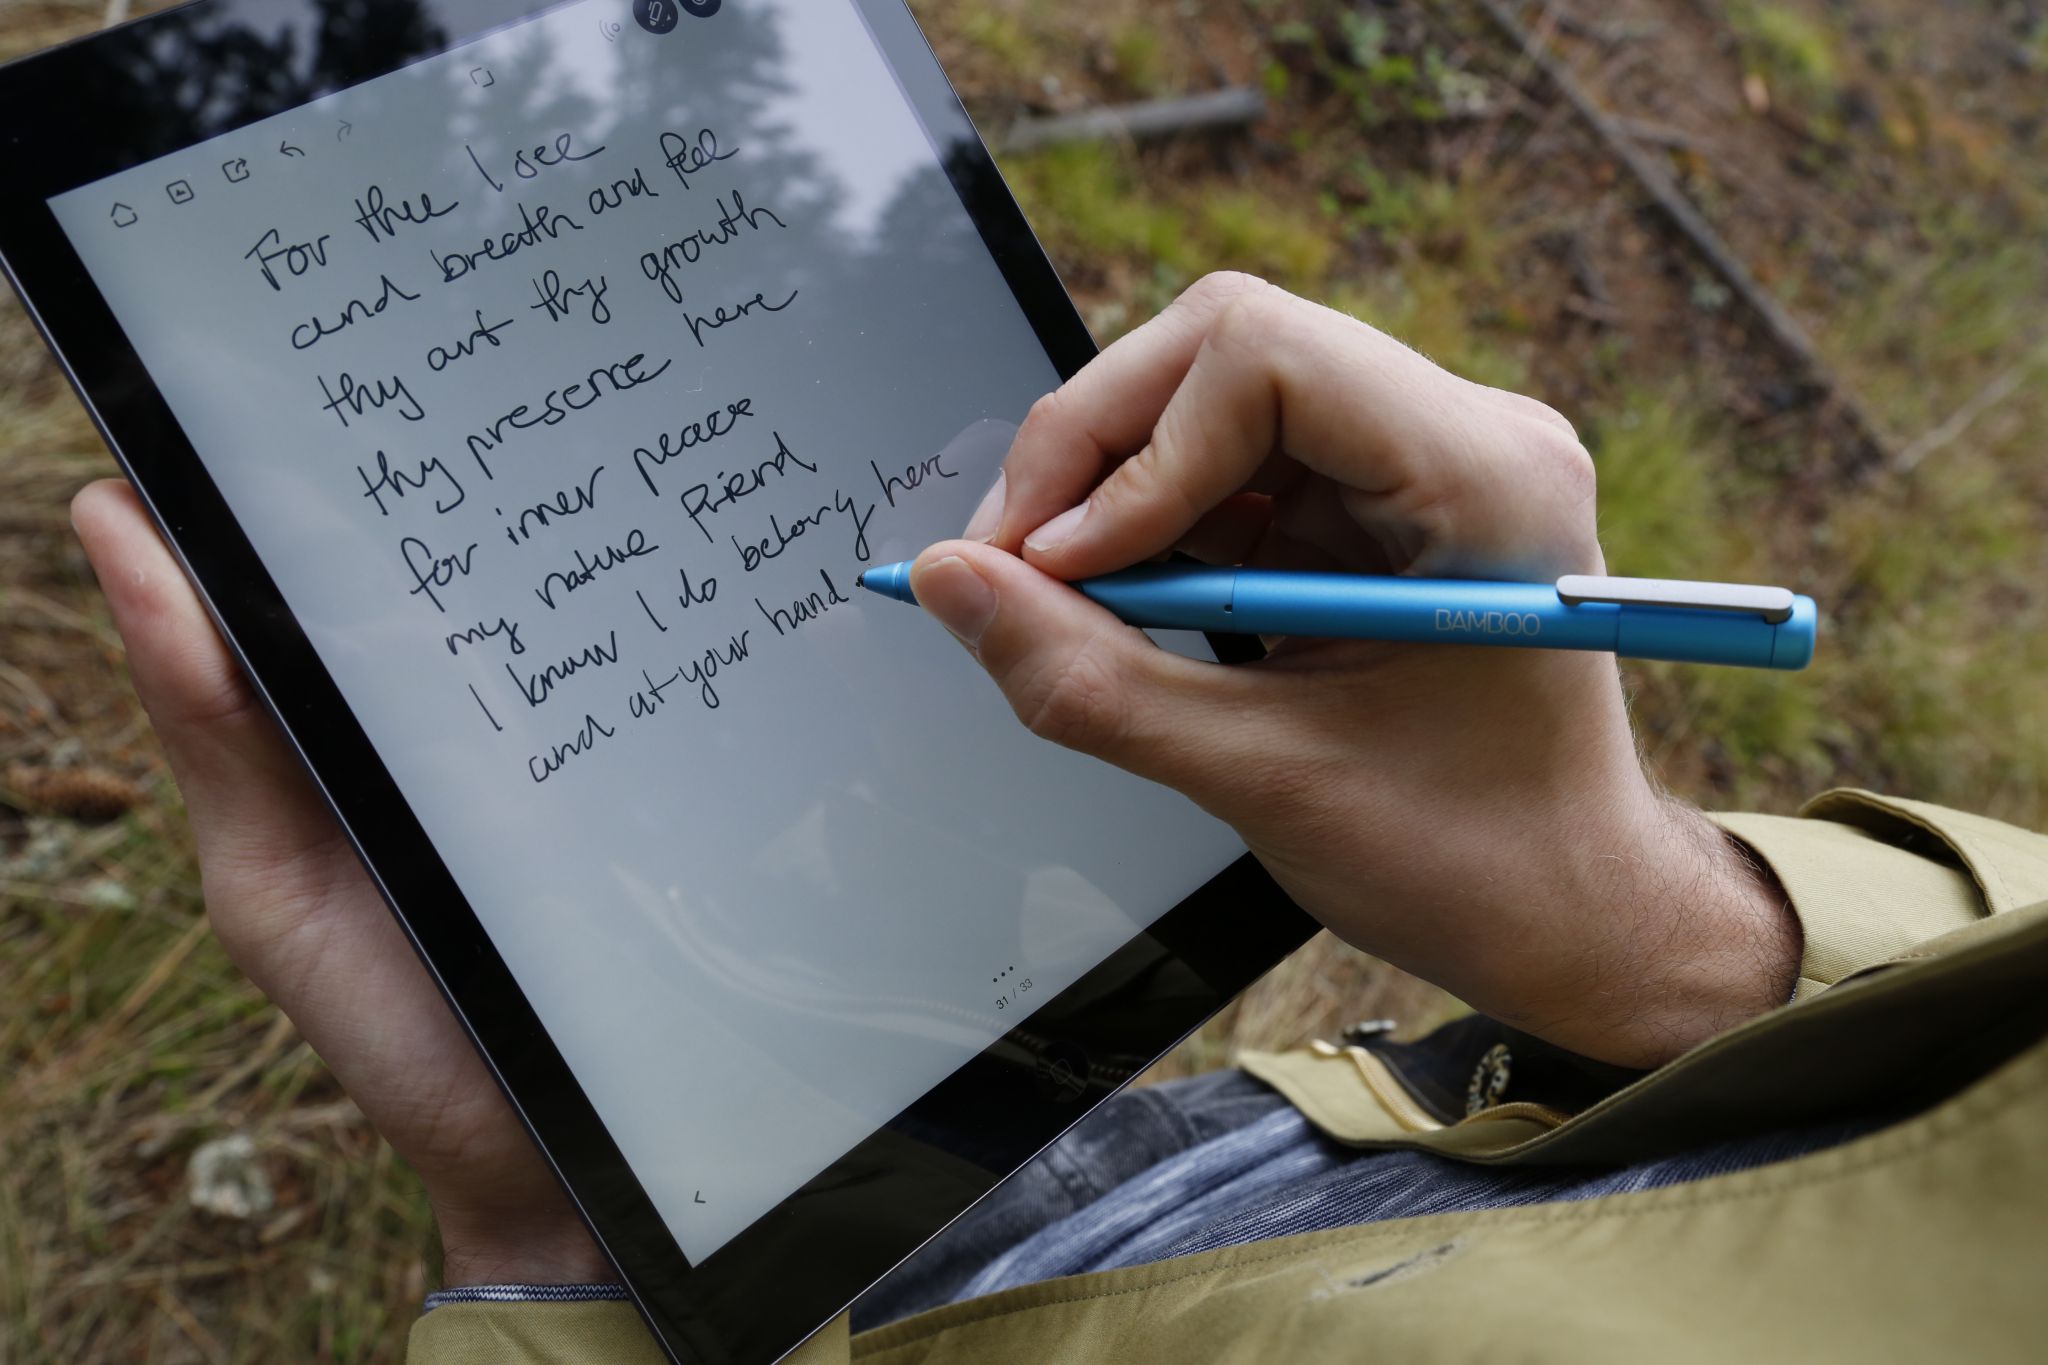 For thee I see
and breath and feel
thy art thy growth
thy presence here
for inner peace
my nature friend
I know I do belong here
and at your hand
BAMBOO
31 / 33